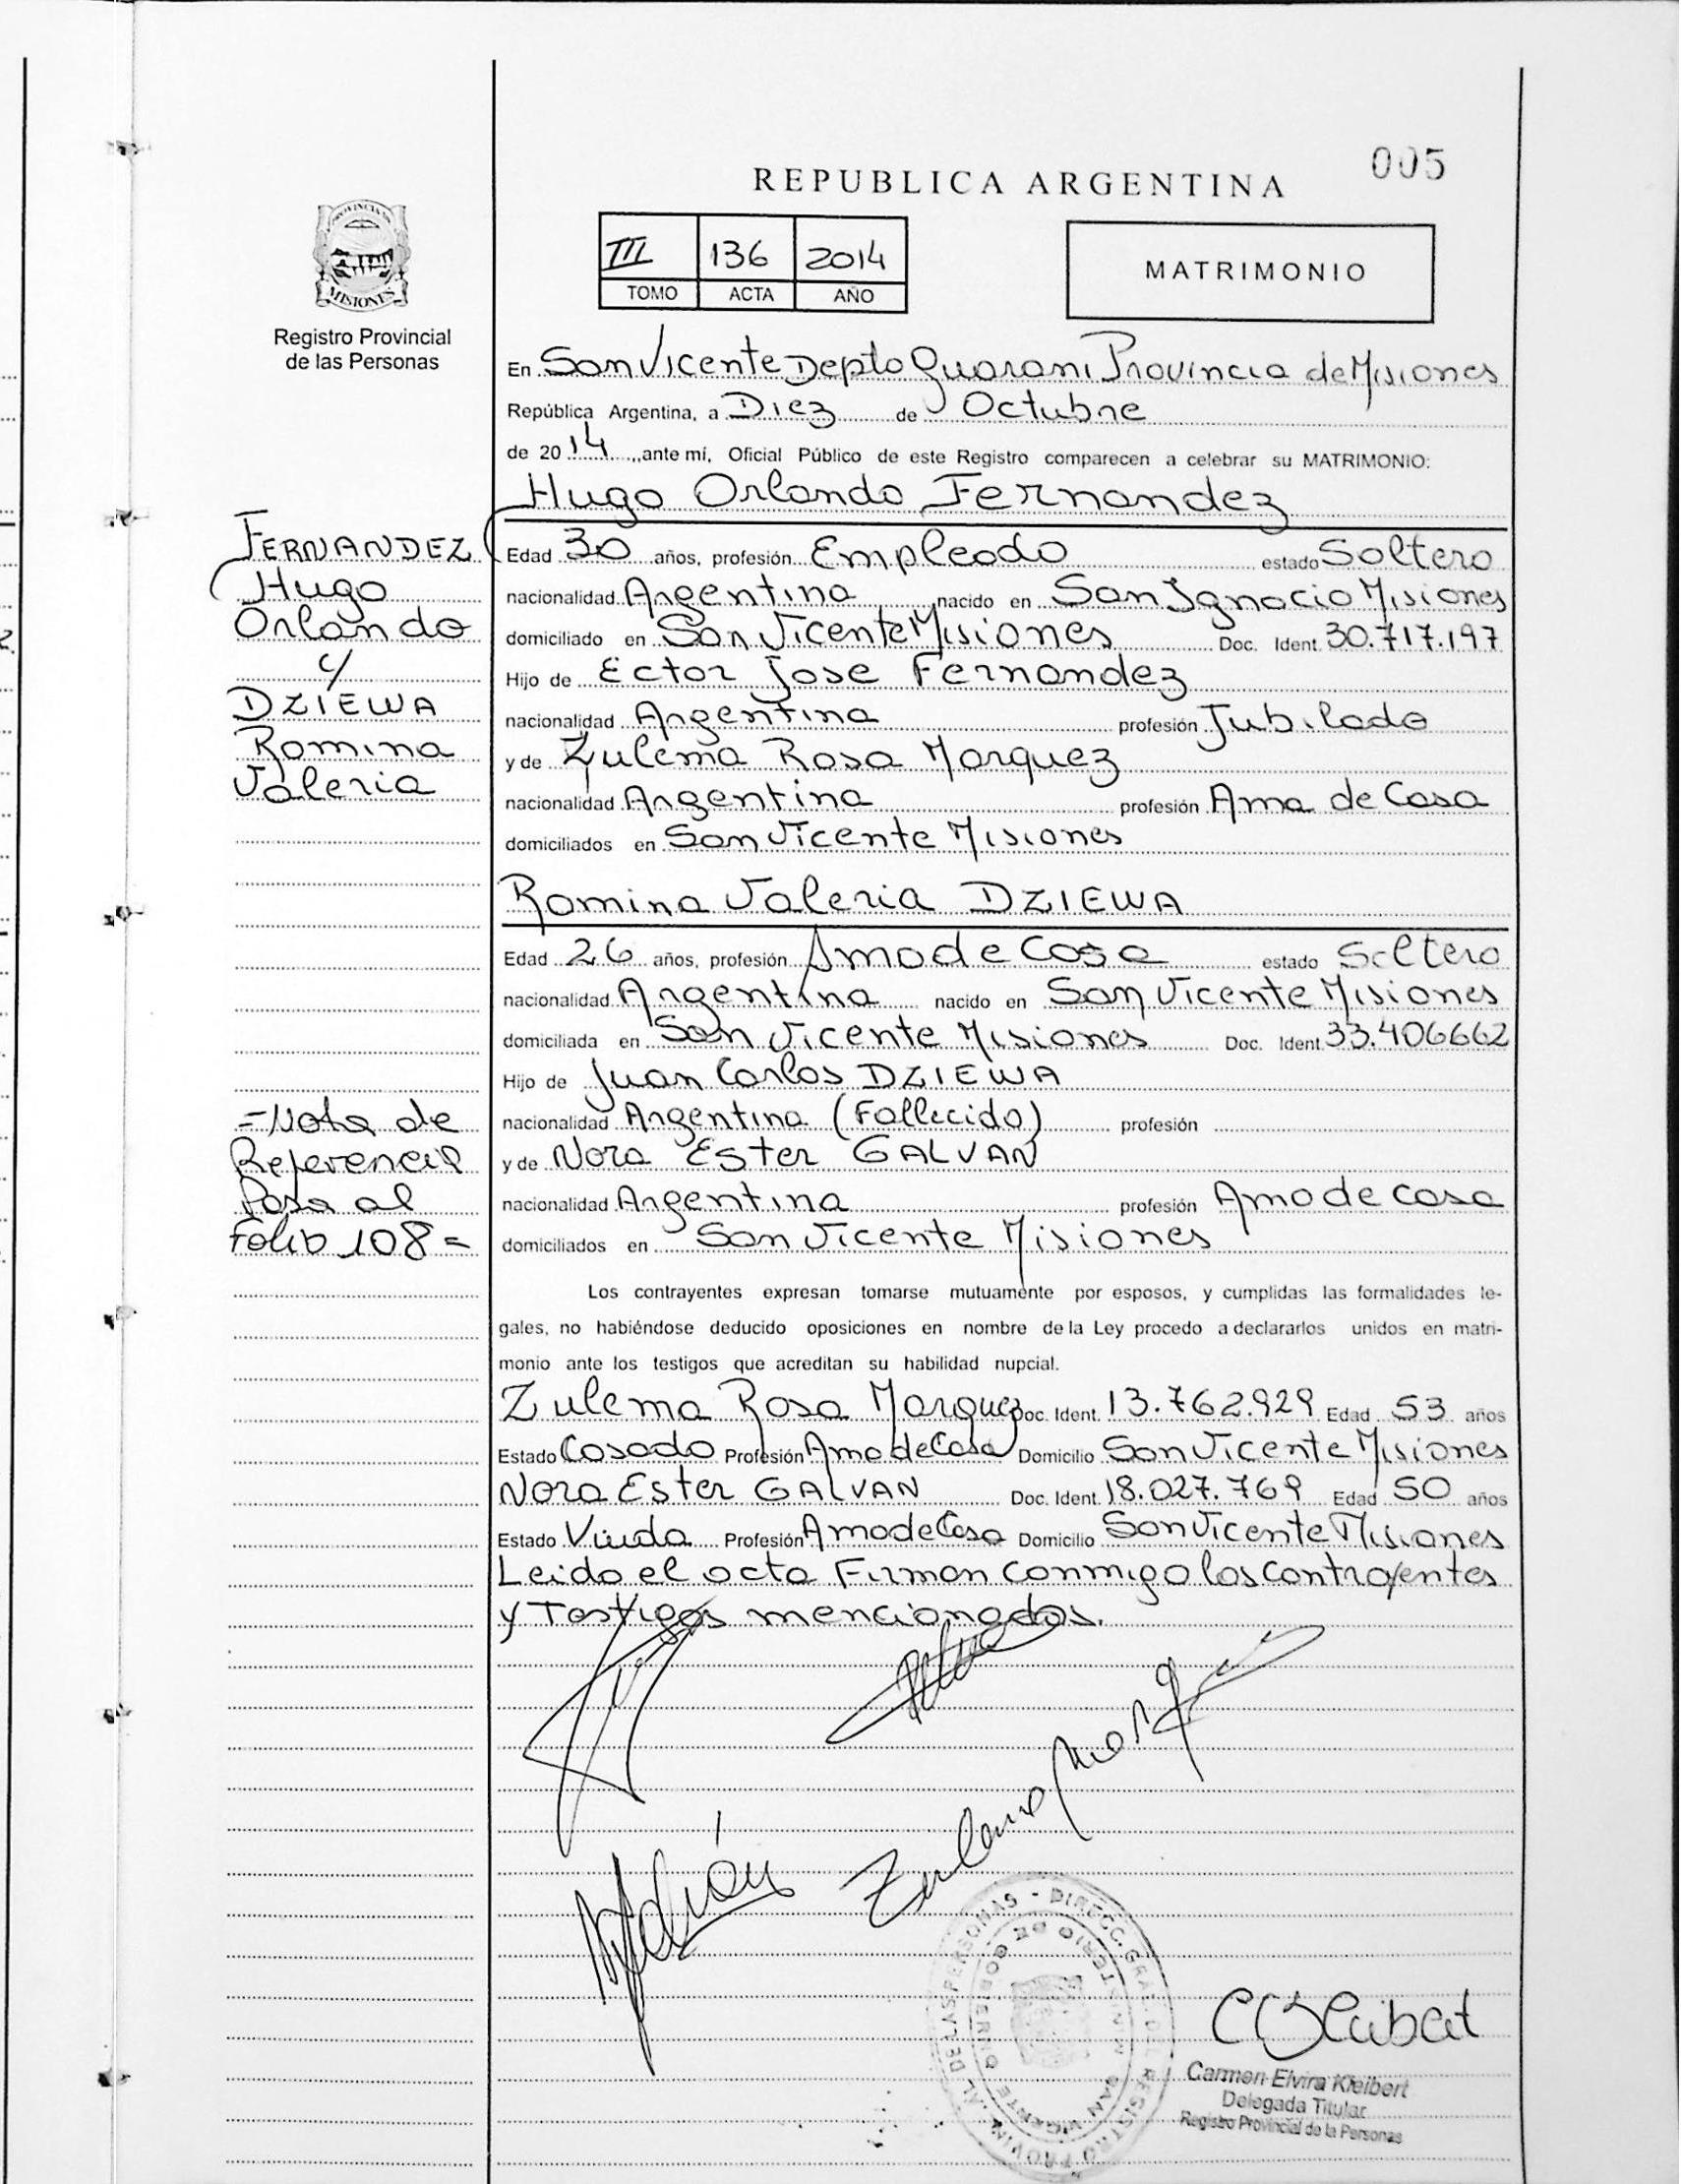 005
REPUBLICA ARGENTINA
III 136 2014
TOMO ACTA AÑO
MATRIMONIO
PROVINCIA DE
MISIONES
Registro Provincial
de las Personas
En San Vicente Depto Guarani Provincia de Misiones
República Argentina, a Diez de Octubre
de 2014, ante mí, Oficial Público de este Registro comparecen a celebrar su MATRIMONIO:
Hugo Orlando Fernandez
Edad 30 años, profesión Empleado estado Soltero
nacionalidad Argentina nacido en San Ignacio Misiones
domiciliado en San Vicente Misiones Doc. Ident. 30.717.197
Hijo de Ector Jose Fernandez
nacionalidad Argentina profesión Jubilado
y de Zulema Rosa Marquez
nacionalidad Argentina profesión Ama de Casa
domiciliados en San Vicente Misiones
Romina Valeria DZIEWA
Edad 26 años, profesión Ama de Casa estado Soltera
nacionalidad Argentina nacido en San Vicente Misiones
domiciliada en San Vicente Misiones Doc. Ident. 33.406662
Hijo de Juan Carlos DZIEWA
nacionalidad Argentina (Fallecido) profesión
y de Nora Ester GALVAN
nacionalidad Argentina profesión Ama de casa
domiciliados en San Vicente Misiones
Los contrayentes expresan tomarse mutuamente por esposos, y cumplidas las formalidades le-
gales, no habiéndose deducido oposiciones en nombre de la Ley procedo a declararlos unidos en matri-
monio ante los testigos que acreditan su habilidad nupcial.
Zulema Rosa Marquez Doc. Ident. 13.762.929 Edad 53 años
Estado Casada Profesión Ama de Casa Domicilio San Vicente Misiones
Nora Ester GALVAN Doc. Ident. 18.027.769 Edad 50 años
Estado Viuda Profesión Ama de Casa Domicilio San Vicente Misiones
Leida el acta Firman conmigo los contrayentes
y Testigos mencionados.
FERNANDEZ
Hugo
Orlando
c/
DZIEWA
Romina
Valeria
=Nota de
Referencia
Pasa al
Folio 108=
Zulema
DIRECC. GRAL. DEL REGISTRO PROVINCIAL DE LAS PERSONAS
MINISTERIO DE GOBIERNO
SAN VICENTE
Carmen Elvira Kleibert
Delegada Titular
Registro Provincial de la Personas